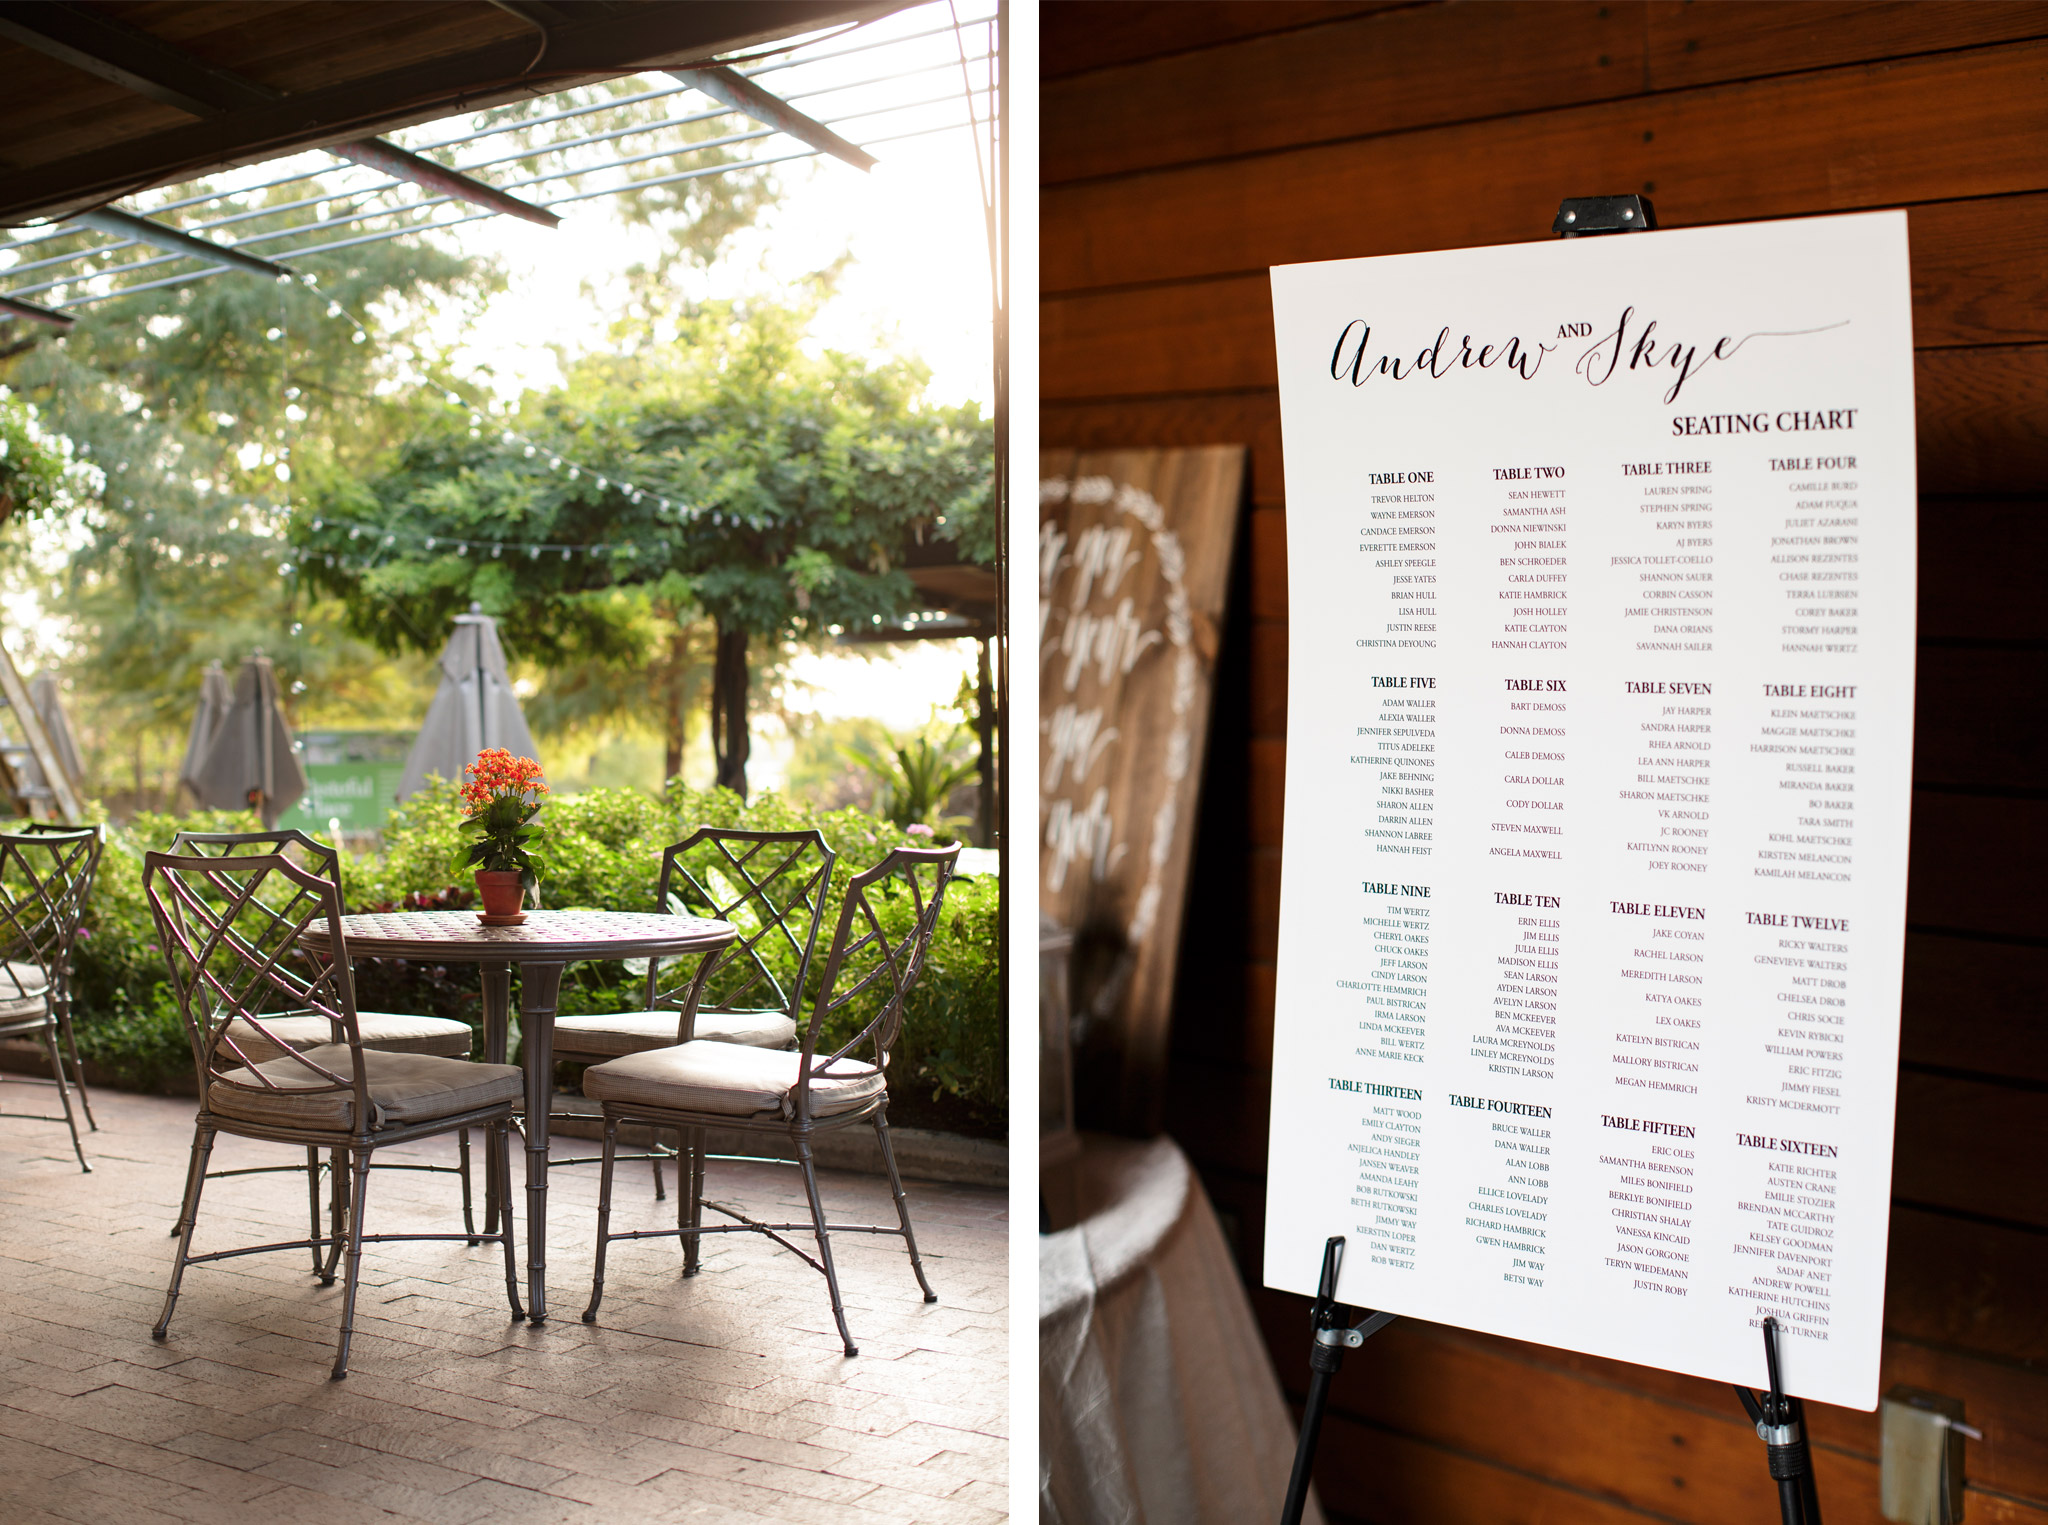 Andrew AND Skye
SEATING CHART
TABLE ONE
TREVOR HELTON
WAYNE EMERSON
CANDACE EMERSON
EVERETTE EMERSON
ASHLEY SPEEGLE
JESSE YATES
BRIAN HULL
LISA HULL
JUSTIN REESE
CHRISTINA DEYOUNG
TABLE TWO
SEAN HEWETT
SAMANTHA ASH
DONNA NIEWINSKI
JOHN BIALEK
BEN SCHROEDER
CARLA DUFFEY
KATIE HAMBRICK
JOSH HOLLEY
KATIE CLAYTON
HANNAH CLAYTON
TABLE THREE
LAUREN SPRING
STEPHEN SPRING
KARYN BYERS
AJ BYERS
JESSICA TOLLET-COELLO
SHANNON SAUER
CORBIN CASSON
JAMIE CHRISTENSON
DANA ORIANS
SAVANNAH SAILER
TABLE FOUR
CAMILLE BURD
ADAM FUQUA
JULIET AZARANI
JONATHAN BROWN
ALLISON REZENTES
CHASE REZENTES
TERRA LUEBSEN
COREY BAKER
STORMY HARPER
HANNAH WERTZ
TABLE FIVE
ADAM WALLER
ALEXIA WALLER
JENNIFER SEPULVEDA
TITUS ADELEKE
KATHERINE QUINONES
JAKE BEHNING
NIKKI BASHER
SHARON ALLEN
DARRIN ALLEN
SHANNON LABREE
HANNAH FEIST
TABLE SIX
BART DEMOSS
DONNA DEMOSS
CALEB DEMOSS
CARLA DOLLAR
CODY DOLLAR
STEVEN MAXWELL
ANGELA MAXWELL
TABLE SEVEN
JAY HARPER
SANDRA HARPER
RHEA ARNOLD
LEA ANN HARPER
BILL MAETSCHKE
SHARON MAETSCHKE
VK ARNOLD
JC ROONEY
KAITLYNN ROONEY
JOEY ROONEY
TABLE EIGHT
KLEIN MAETSCHKE
MAGGIE MAETSCHKE
HARRISON MAETSCHKE
RUSSELL BAKER
MIRANDA BAKER
BO BAKER
TARA SMITH
KOHL MAETSCHKE
KIRSTEN MELANCON
KAMILAH MELANCON
TABLE NINE
TIM WERTZ
MICHELLE WERTZ
CHERYL OAKES
CHUCK OAKES
JEFF LARSON
CINDY LARSON
CHARLOTTE HEMMRICH
PAUL BISTRICAN
IRMA LARSON
LINDA MCKEEVER
BILL WERTZ
ANNE MARIE KECK
TABLE TEN
ERIN ELLIS
JIM ELLIS
JULIA ELLIS
MADISON ELLIS
SEAN LARSON
AYDEN LARSON
AVELYN LARSON
BEN MCKEEVER
AVA MCKEEVER
LAURA MCREYNOLDS
LINLEY MCREYNOLDS
KRISTIN LARSON
TABLE ELEVEN
JAKE COYAN
RACHEL LARSON
MEREDITH LARSON
KATYA OAKES
LEX OAKES
KATELYN BISTRICAN
MALLORY BISTRICAN
MEGAN HEMMRICH
TABLE TWELVE
RICKY WALTERS
GENEVIEVE WALTERS
MATT DROB
CHELSEA DROB
CHRIS SOCIE
KEVIN RYBICKI
WILLIAM POWERS
ERIC FITZIG
JIMMY FIESEL
KRISTY MCDERMOTT
TABLE THIRTEEN
MATT WOOD
EMILY CLAYTON
ANDY SIEGER
ANJELICA HANDLEY
JANSEN WEAVER
AMANDA LEAHY
BOB RUTKOWSKI
BETH RUTKOWSKI
JIMMY WAY
KIERSTIN LOPER
DAN WERTZ
ROB WERTZ
TABLE FOURTEEN
BRUCE WALLER
DANA WALLER
ALAN LOBB
ANN LOBB
ELLICE LOVELADY
CHARLES LOVELADY
RICHARD HAMBRICK
GWEN HAMBRICK
JIM WAY
BETSI WAY
TABLE FIFTEEN
ERIC OLES
SAMANTHA BERENSON
MILES BONIFIELD
BERKLYE BONIFIELD
CHRISTIAN SHALAY
VANESSA KINCAID
JASON GORGONE
TERYN WIEDEMANN
JUSTIN ROBY
TABLE SIXTEEN
KATIE RICHTER
AUSTEN CRANE
EMILIE STOZIER
BRENDAN MCCARTHY
TATE GUIDROZ
KELSEY GOODMAN
JENNIFER DAVENPORT
SADAF ANET
ANDREW POWELL
KATHERINE HUTCHINS
JOSHUA GRIFFIN
TURNER